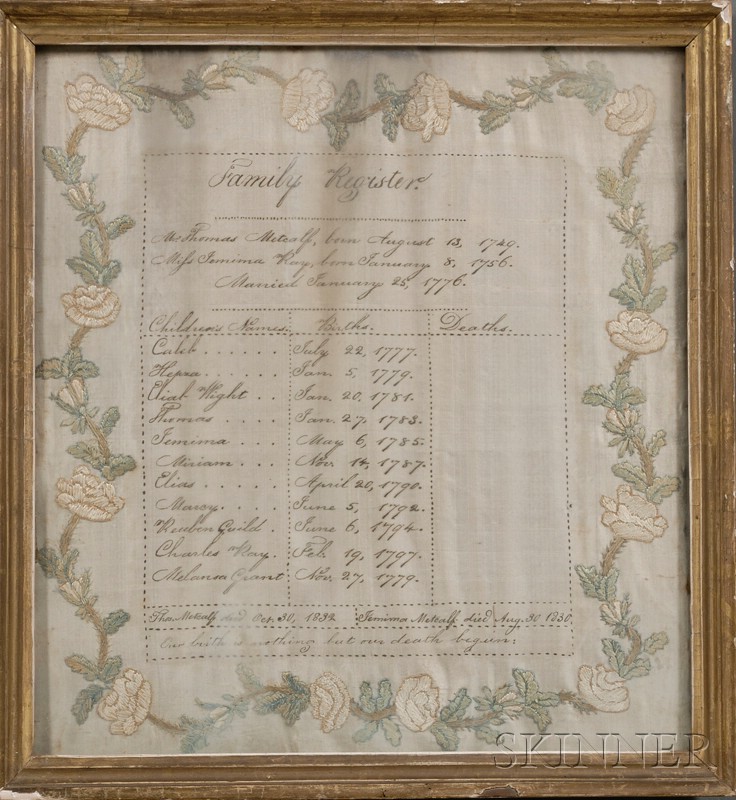 Family Register.
Mr Thomas Metcalf, born August 13, 1749.
Miss Jemima Ray, born January 8, 1756.
Married January 25, 1776.
Children's Names. Births. Deaths.
Caleb . . . . . . July 22, 1777.
Hepza . . . . . Jan. 5, 1779.
Eliab Wight . . Jan. 20, 1781.
Thomas . . . . . Jan. 27, 1783.
Jemima . . . . May 6, 1785.
Miriam . . . Nov. 14, 1787.
Elias . . . . . April 20, 1790.
Mercy . . . . June 5, 1792.
Reuben Guild . June 6, 1794.
Charles Ray. Feb. 19, 1797.
Melansa Grant Nov. 27, 1779.
Tho. Metcalf died Oct. 30, 1832 Jemima Metcalf died Aug. 30 1830
Our birth is nothing but our death begun:
SKINNER